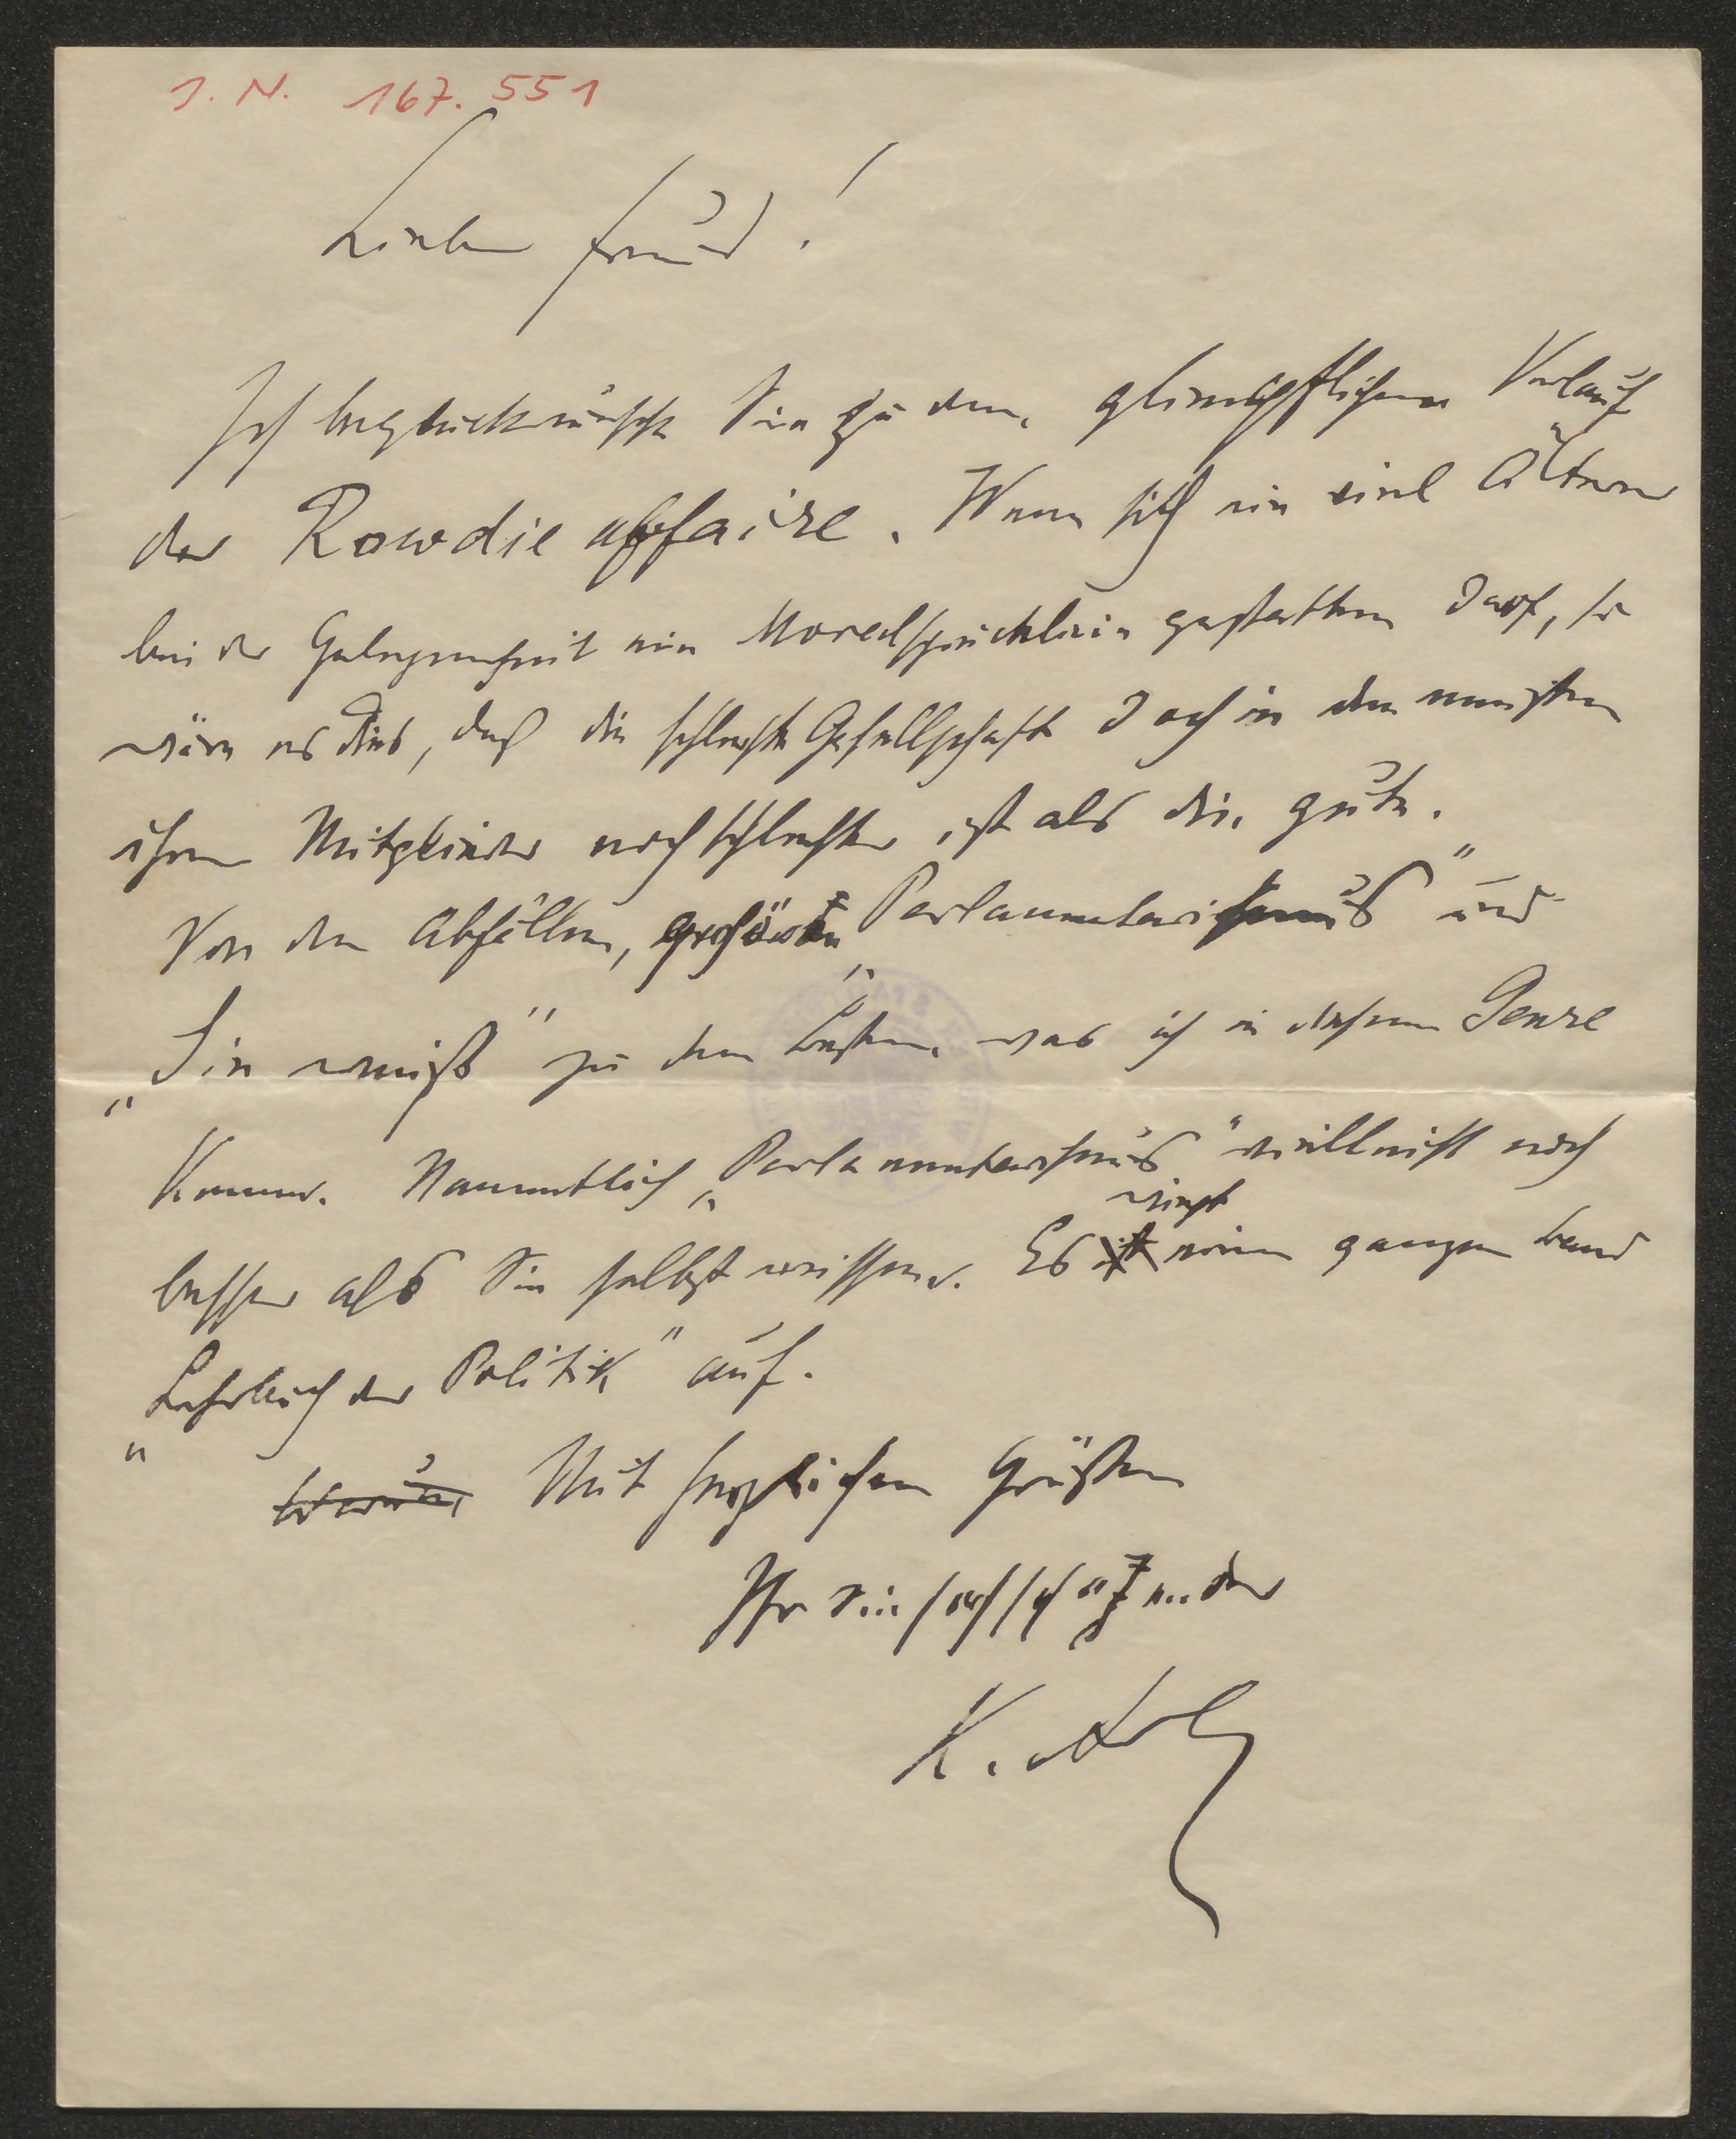 J. N. 167.551
Lieber Freund!
Ich beglückwünsche Sie zu dem glimpflichen Verlauf
der Rowdieaffaire. Wenn sich ein viel Älterer
bei der Gelegenheit ein Moralsprüchlein gestatten darf, so
wäre es dies, daß die schlechte Gesellschaft doch in den meisten
ihrer Mitglieder noch schlechter ist als die gute.
Von den Abfällen, gehören „Parlamentarismus“ und
„Sie weiß“ zu dem Besten, was ich in diesem Genre
kenne. Namentlich „Parlamentarismus“ vielleicht noch
besser als Sie selbst wissen. Es wiegt einen ganzen Band
„Lehrbuch der Politik“ auf.
Mit herzlichen Grüßen
Ihr Sie hochschätzender
K.